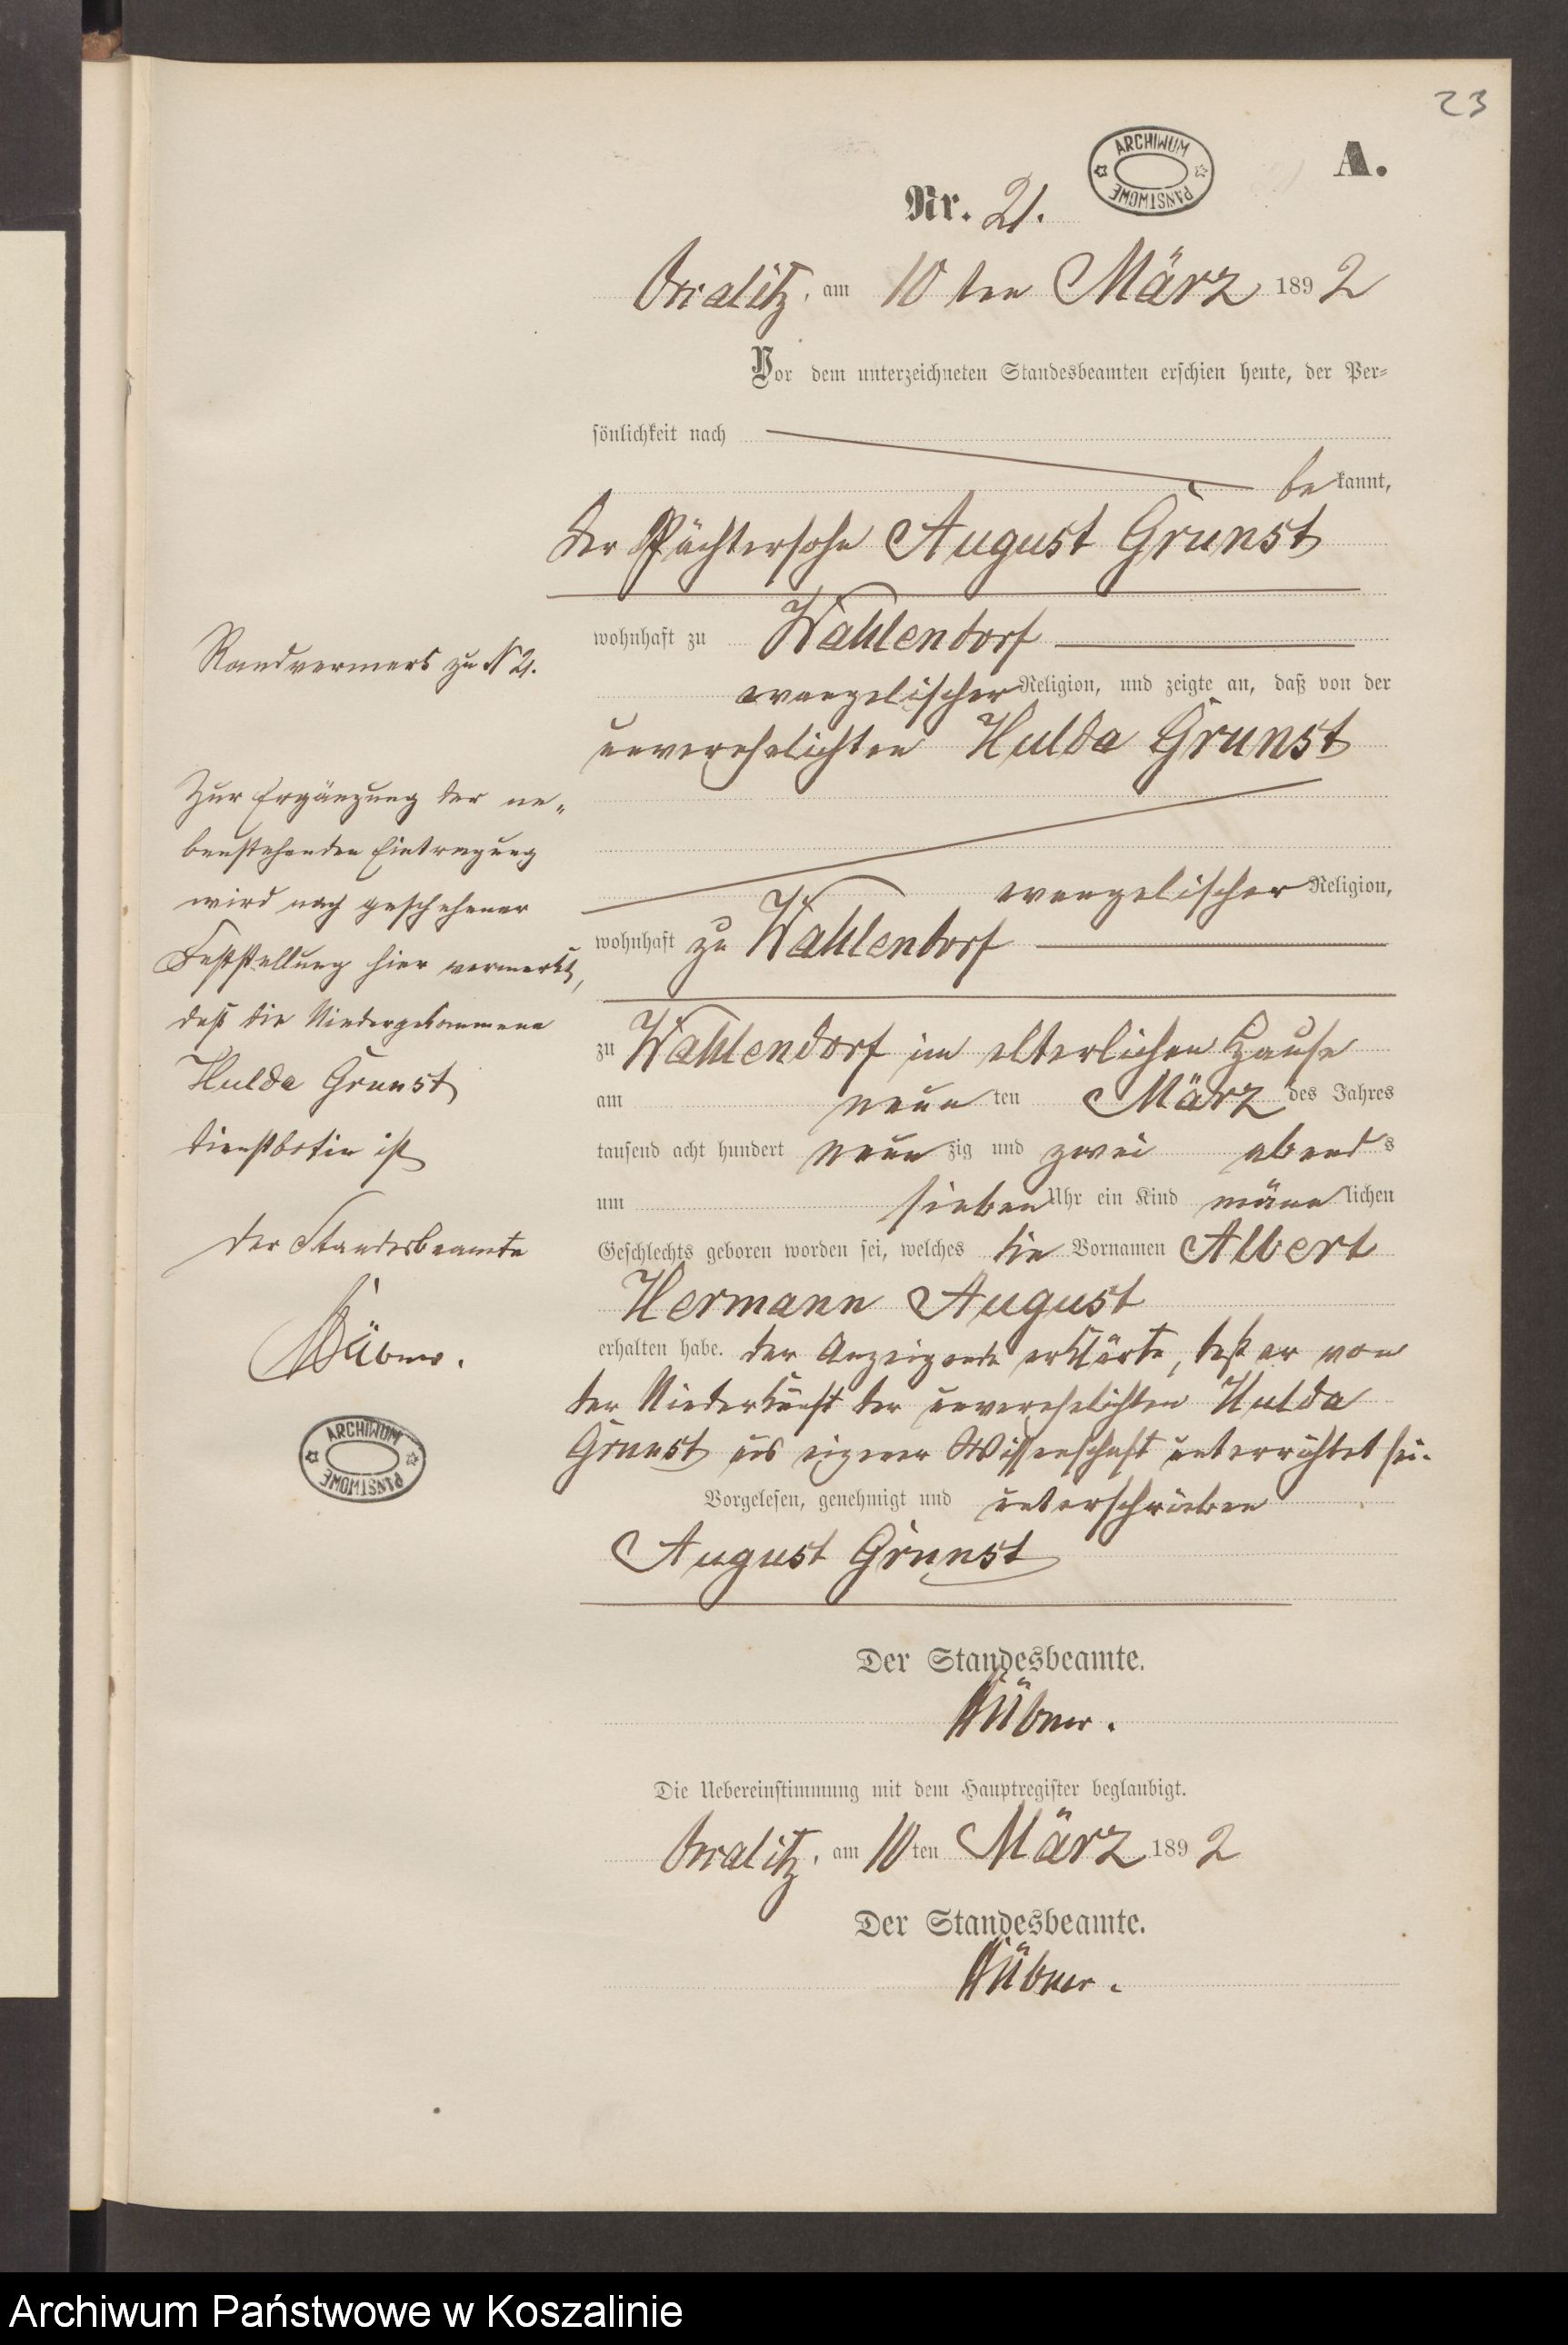 23
A.
ARCHIWUM PAŃSTWOWE
Nr. 21.
am 10 ten März 1892
Vor dem unterzeichneten Standesbeamten erschien heute, der Per-
sönlichkeit nach
bekannt,
der Pächtersohn August Grunst
wohnhaft zu Wahlendorf
evangelischer Religion, und zeigte an, daß von der
unverehelichten Hulda Grunst
evangelischer Religion,
wohnhaft zu Wahlendorf
zu Wahlendorf im elterlichen Hause
am neun ten März des Jahres
tausend acht hundert neun zig und zwei abends
um sieben Uhr ein Kind männlichen
Geschlechts geboren worden sei, welches die Vornamen Albert
Hermann August
erhalten habe. der Anzeigende erklärte, daß er von
der Niederkunft der unverehelichten Hulda
Grunst aus eigener Wissenschaft unterrichtet sei.
Vorgelesen, genehmigt und unterschrieben
August Grunst
Der Standesbeamte.
Hübner.
Die Uebereinstimmung mit dem Hauptregister beglaubigt.
am 10 ten März 1892
Der Standesbeamte.
Hübner.
Randvermerk zu N 21.
Zur Ergänzung der ne-
benstehenden Eintragung
wird nach geschehener
Feststellung hier vermerkt,
daß die Niedergekommene
Hulda Grunst
Dienstbotin ist
Der Standesbeamte
Hübner.
ARCHIWUM PAŃSTWOWE
Archiwum Państwowe w Koszalinie